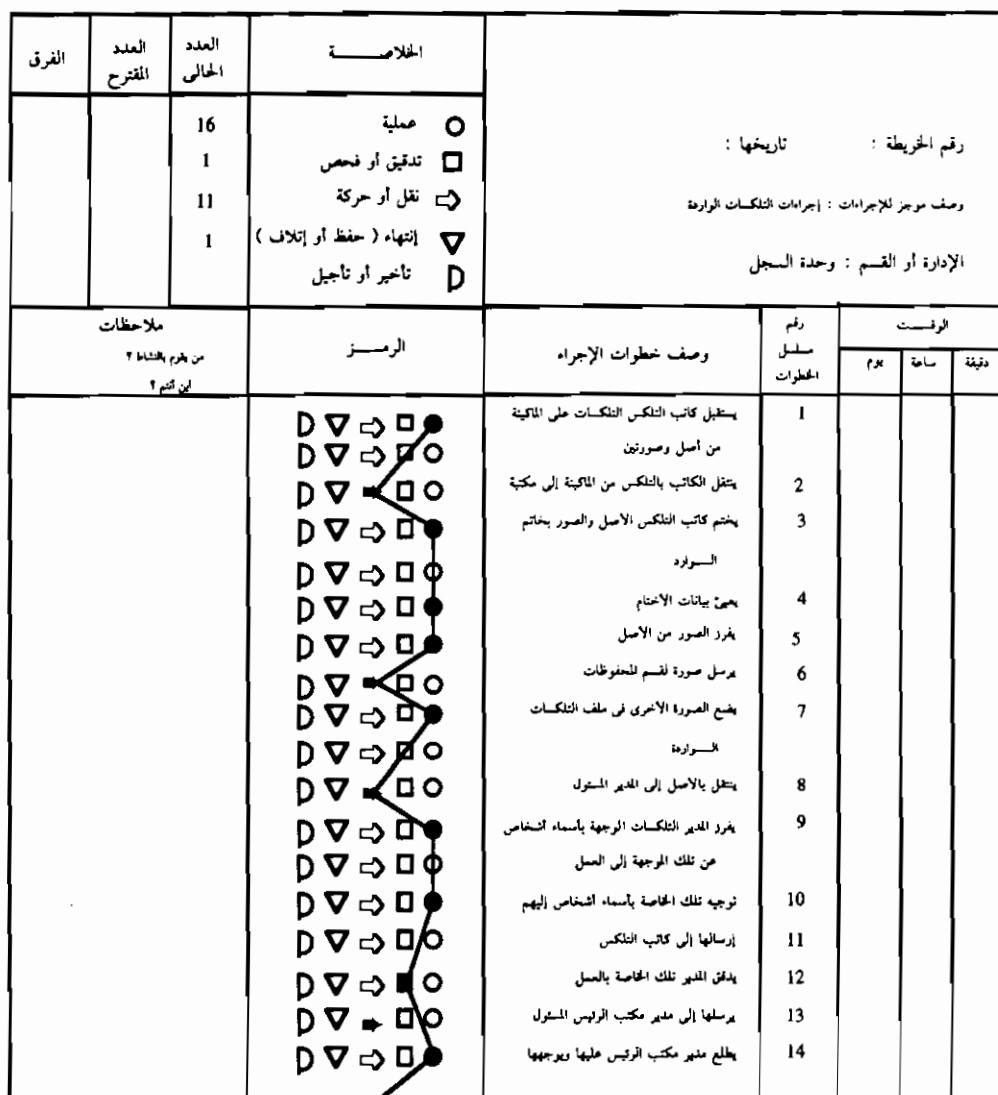 رقم الخريطة : تاريخها :
وصف موجز للإجراءات : إجراءات التلكسات الواردة
الإدارة أو القسم : وحدة السجل
الخلاصـــــة العدد الحالى العدد المقترح الفرق
عملية 16
تدقيق أو فحص 1
نقل أو حركة 11
إنتهاء ( حفظ أو إتلاف ) 1
تأخير أو تأجيل
الوقـــت
دقيقة ساعة يوم
رقم مسلسل الخطوات
وصف خطوات الإجراء
الرمـــز
ملاحظات
من يقوم بالنشاط ؟
اين أتتم ؟
1 يستقبل كاتب التلكس التلكسات على الماكينة
من أصل وصورتين
2 ينتقل الكاتب بالتلكس من الماكينة إلى مكتبة
3 يختم كاتب التلكس الأصل والصور بخاتم
الـــوارد
4 يعبئ بيانات الأختام
5 يفرز الصور من الأصل
6 يرسل صورة لقسم المحفوظات
7 يضع الصورة الأخرى فى ملف التلكسات
الـــواردة
8 ينتقل بالأصل إلى المدير المسئول
9 يفرز المدير التلكسات الوجهة بأسماء أشخاص
عن تلك الموجهة إلى العمل
10 توجيه تلك الخاصة بأسماء أشخاص إليهم
11 إرسالها إلى كاتب التلكس
12 يدقق المدير تلك الخاصة بالعمل
13 يرسلها إلى مدير مكتب الرئيس المسئول
14 يطلع مدير مكتب الرئيس عليها ويوجهها